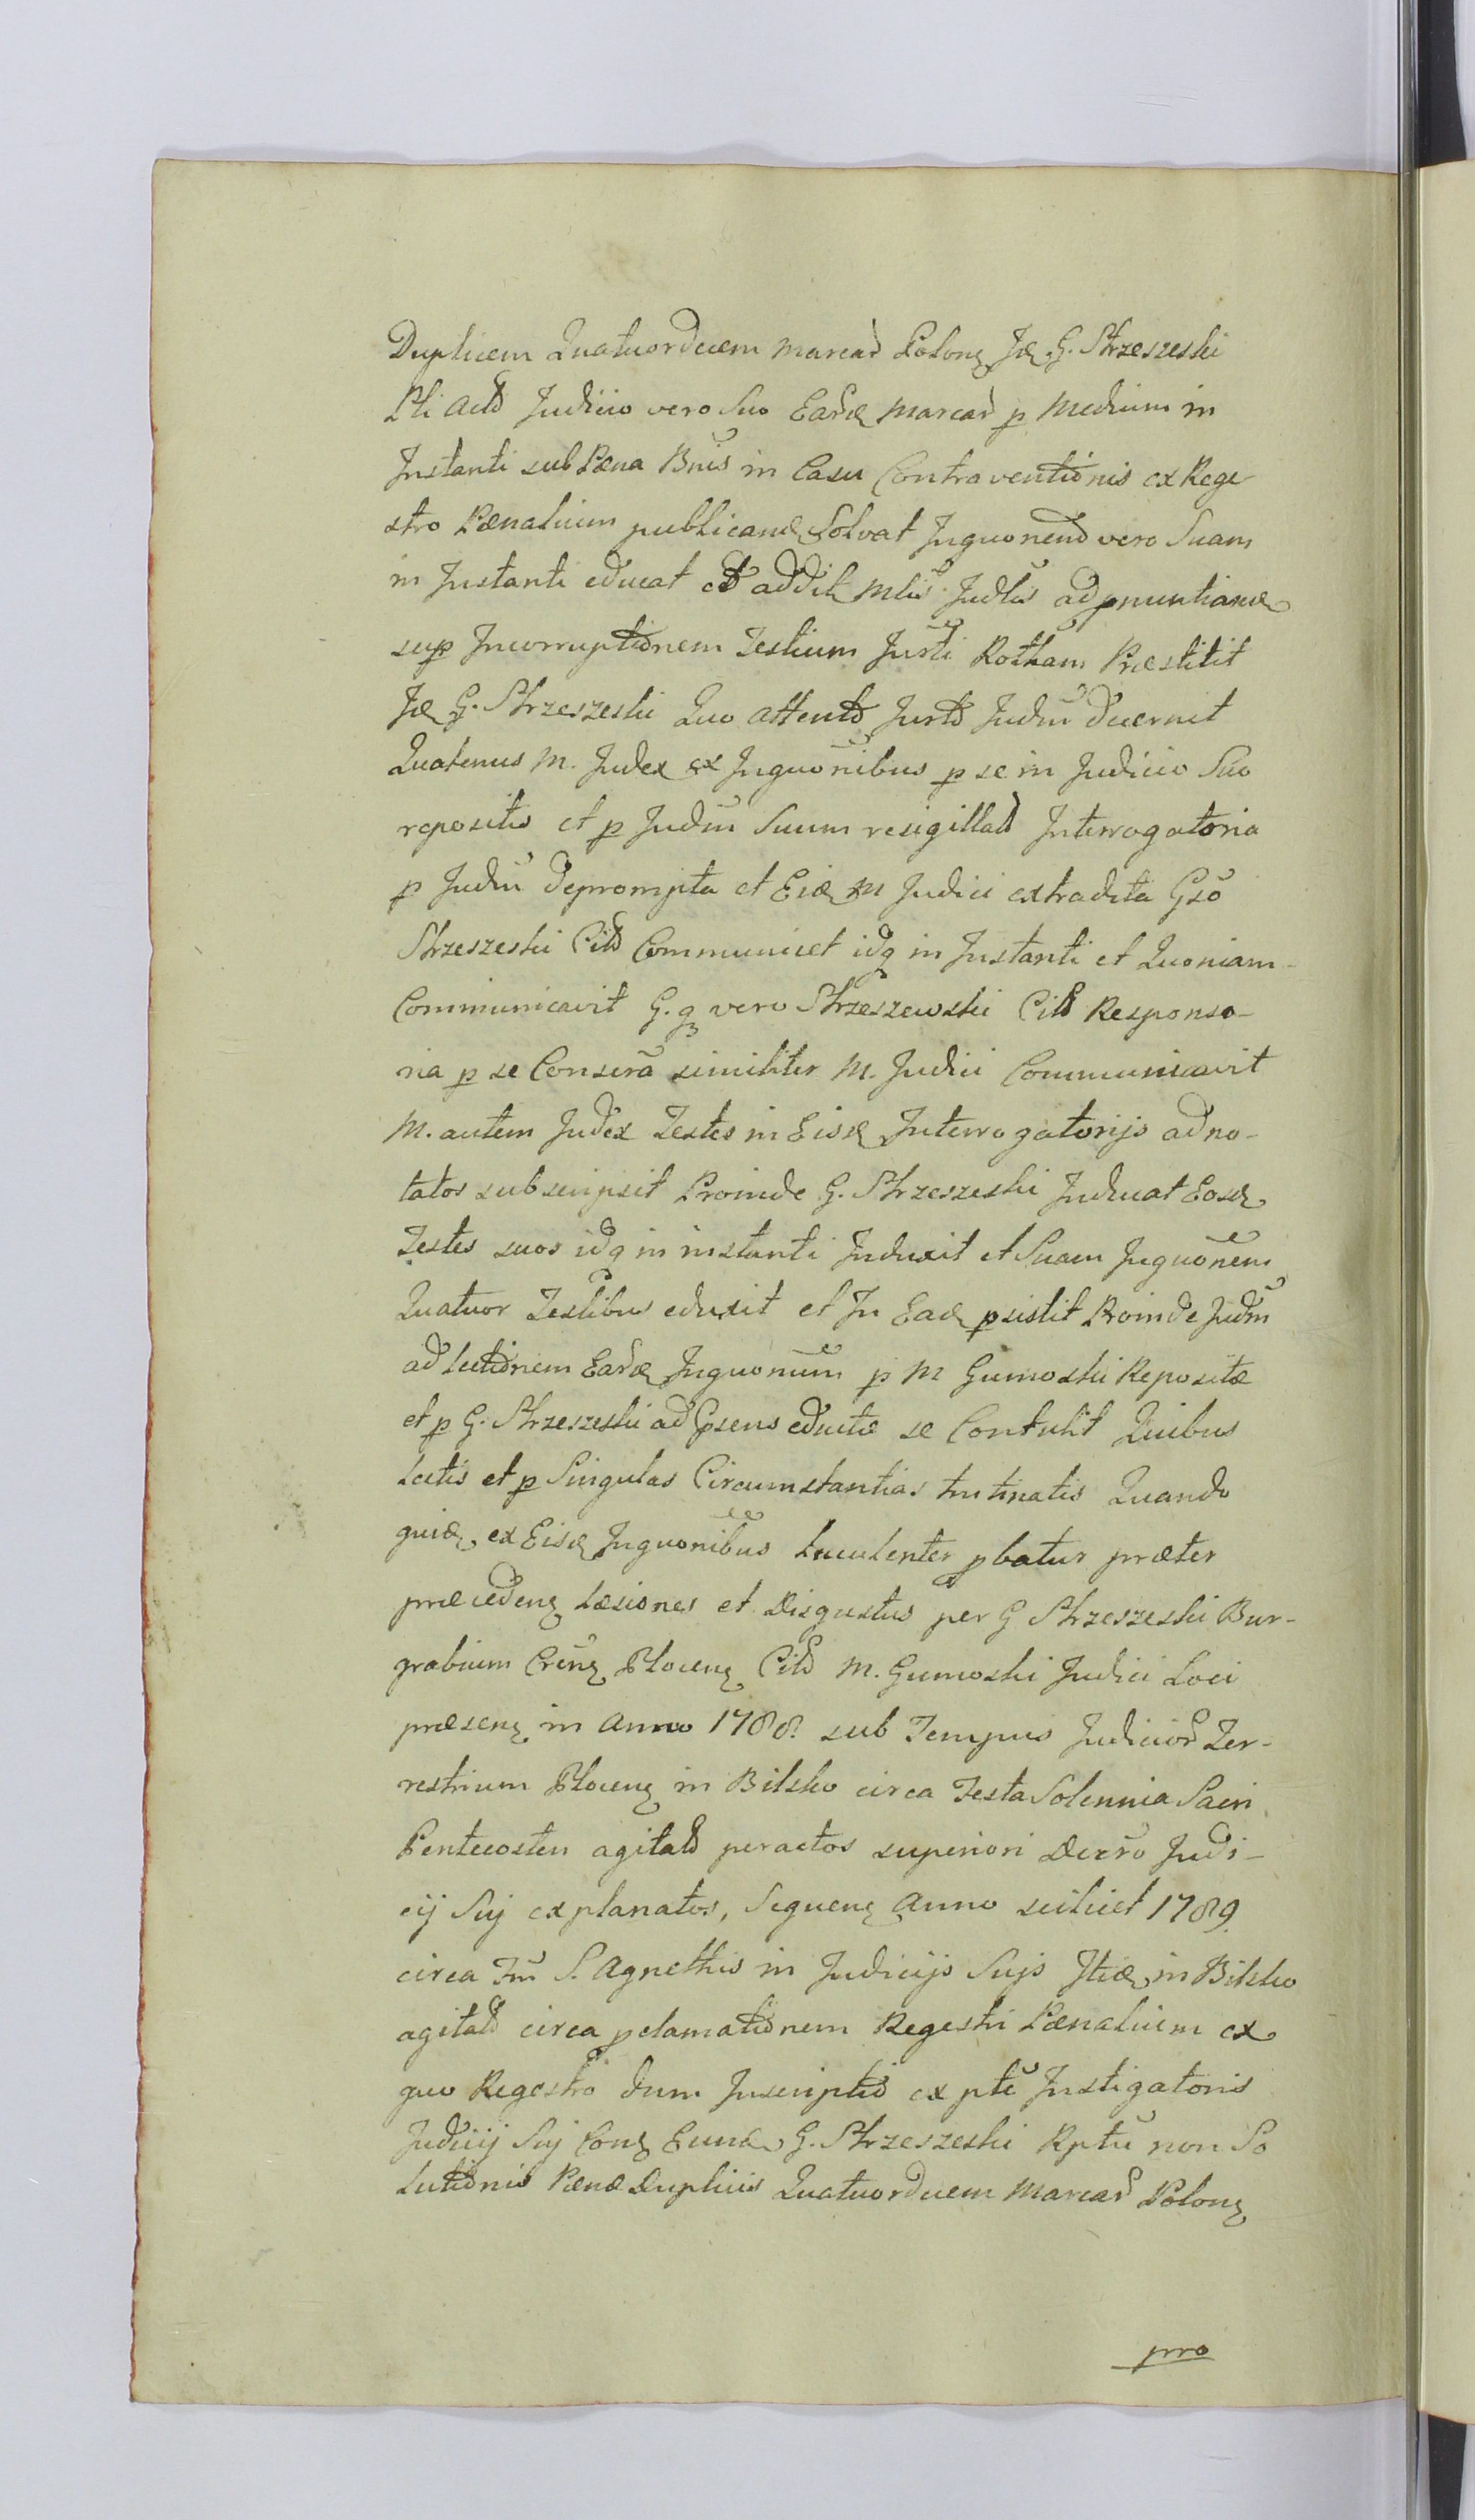 Duplicem Quatuordecem marcar̃ Polonꝫ Id. G. Strzeszeski
Pti Actõ Judicio vero Suo Eard. marcar̃ p Medium in
Instanti sub Pæna Bnis in Casu Contraventiõnis ex Rege
stro Pænalium publicand. Solvat Inquonem vero Suam
in Instanti educat et addit Mtis Judtis ad pnuntiand.
sup Incorruptiõnem Testium Jurti Rotham Præstitit
Id. G. Strzeszeski Quo attentõ Jurtõ Judm decernit
Quatenus M. Judex ex Inquonibus p se in Judicio Suo
repositis et p Judm Suum resigillatõ Interrogatoria
p Judm deprompta et Eid. M Judici extradita Gso
Strzeszeski Citõ Communicet idq in Instanti et Quoniam
Communicavit G. q vero Strzeszewski Citõ Responso-
ria p se Conserã similiter M. Judici Communicavit
M. autem Judex Testes in Eisd. Interrogatorijs adno-
tatos subscripsit Proinde G. Strzeszeski Inducat Eosd.
Testes suos idq in instanti Induxit et Suam Inquonem
Quatuor Testibus eduxit et In Ead. psistit Proinde Judm
ad lectiõnem Eard. Inquonum p M Gumoski Repositæ
et p G. Strzeszeski ad Psens eductæ se Contulit Quibus
Lectis et p Singulas Circumstantias trutinatis Quando
quid. ex Eisd. Inquonibus luculenter pbatur præter
præcedenꝫ læsiones et disgustus per G Strzeszeski Bur-
grabium Crenꝫ Plocenꝫ Citõ M. Gumoski Judici Loci
præsenꝫ in Anno 1788. sub Tempus Judicior̃ Ter-
restrium Plocenꝫ in Bilsko circa Festa Solennia Sacri
Pentecosten agitatõ peractos superiori Decrõ Judi-
cij Sui explanatos, Sequenꝫ Anno scilicet 1789.
circa Fm S. Agnethis in Judicijs Sujs Itid. in Bilsko
agitatõ circa pclamatiõnem Regestri Pænalium ex
quo Regestro dum Inscriptiõ ex pte Instigatoris
Judicij Sui Conꝫ Eund. G. Strzeszeski Rptũ non So
lutiõnis Pænæ Duplicis Quatuordecem Marcar̃ Polonꝫ
pro